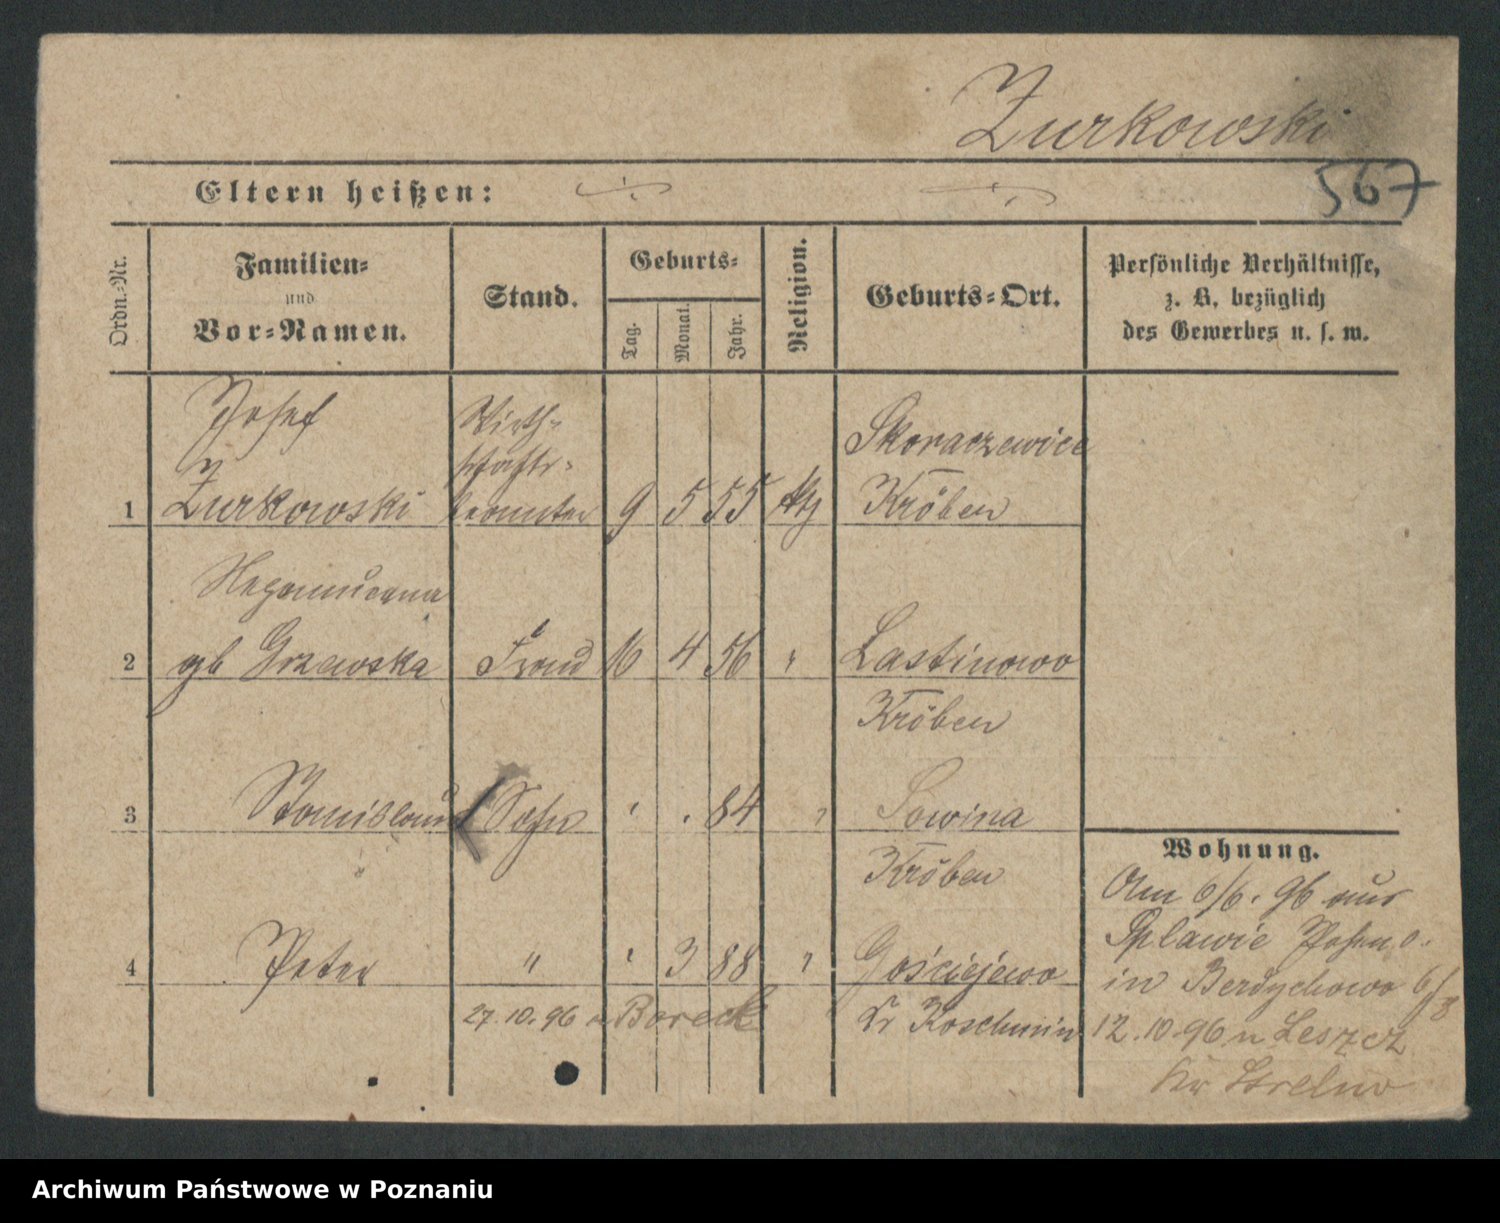 Zurkowski
567
Eltern heißen:
Ordn.-Nr.
Familien-
und
Vor-Namen.
Stand.
Geburts-
Tag.
Monat.
Jahr.
Religion.
Geburts-Ort.
Persönliche Verhältnisse,
z. B. bezüglich
des Gewerbes u. s. w.
1
Josef
Zurkowski
Wirth-
schafts-
beamter
9 5 55 kth
Skoraczewice
Kröben
2
Nepomucena
gb Grzawska
Frau
16 4 56 "
Lastinowo
Kröben
3
Stanislaus
Sohn
' . 84 "
Sowina
Kröben
4
Peter
"
' 3 88 "
Gościejewo
Kr Koschmin
27.10.96 n Borek
Wohnung.
Am 6/6. 96 aus
Splawie Posen o.
in Berdychowo 6/8
12.10.96 n Leszcz
Kr Strelno
Archiwum Państwowe w Poznaniu